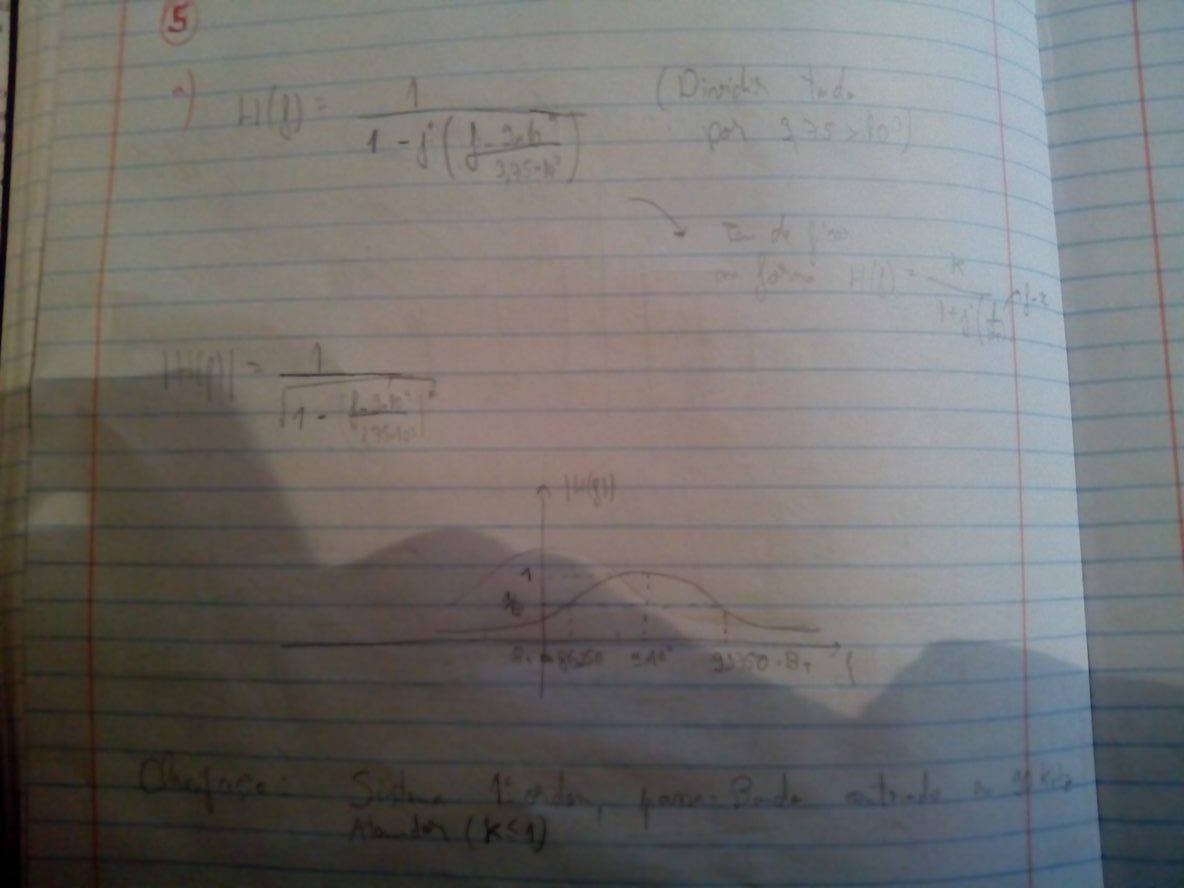 5
a) H(f) = 1 / (1 - j ((f - 9×10⁴) / (3,75×10³)))
(Dividir tudo
por 3,75 × 10³)
Tem de ficar
na forma H(f) = K / (1 + j (f
|H(f)| = 1 / √(1 - [(f - 9×10⁴) / (3,75×10³)]²)
|H(f)|
1
86250 9×10⁴ 93750 f
Sistema 1ª ordem, passa-Banda centrado em 90 kHz
Atenuador (K≤1)